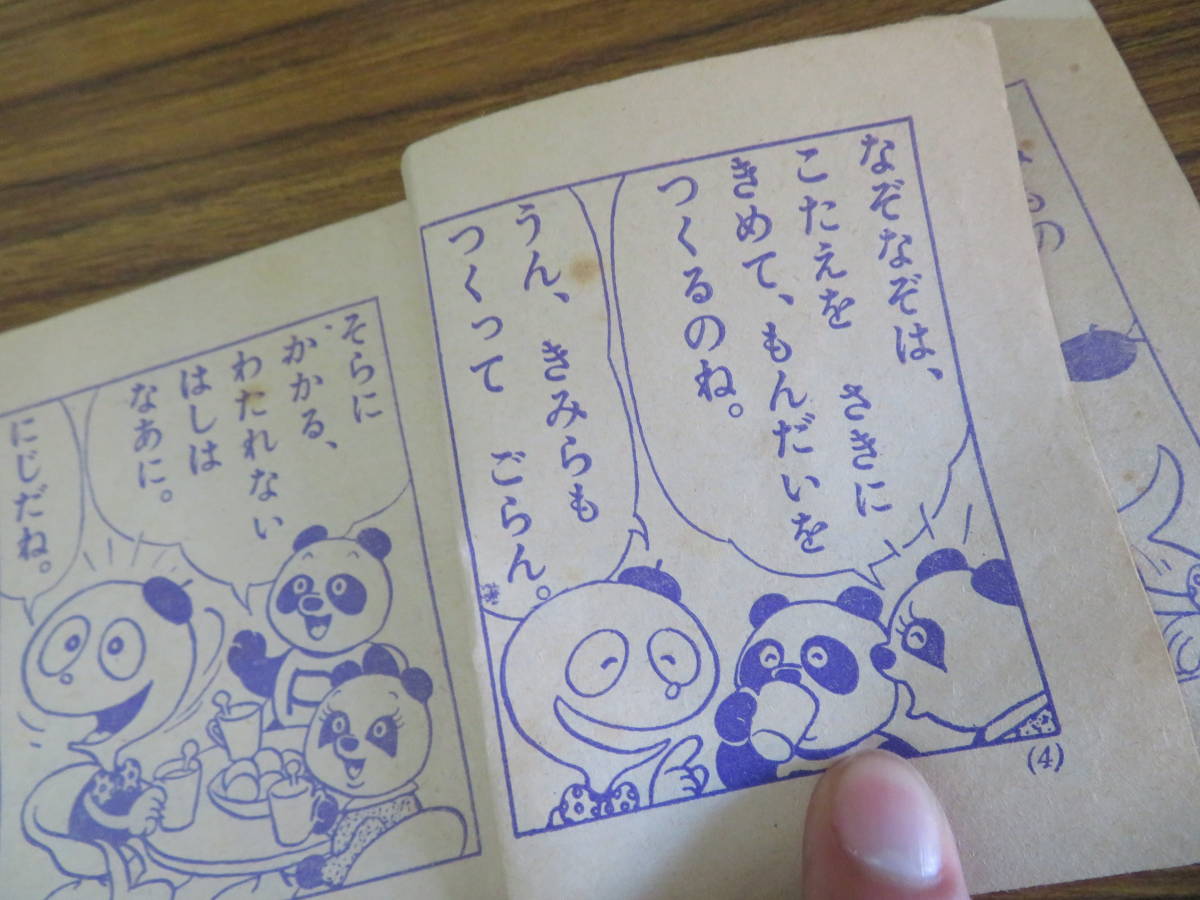 なぞなぞは、
こたえを さきに
きめて、もんだいを
つくるのね。
うん、きみらも
つくって ごらん。
(4)
そらに
かかる、
わたれない
はしは
なあに。
にじだね。